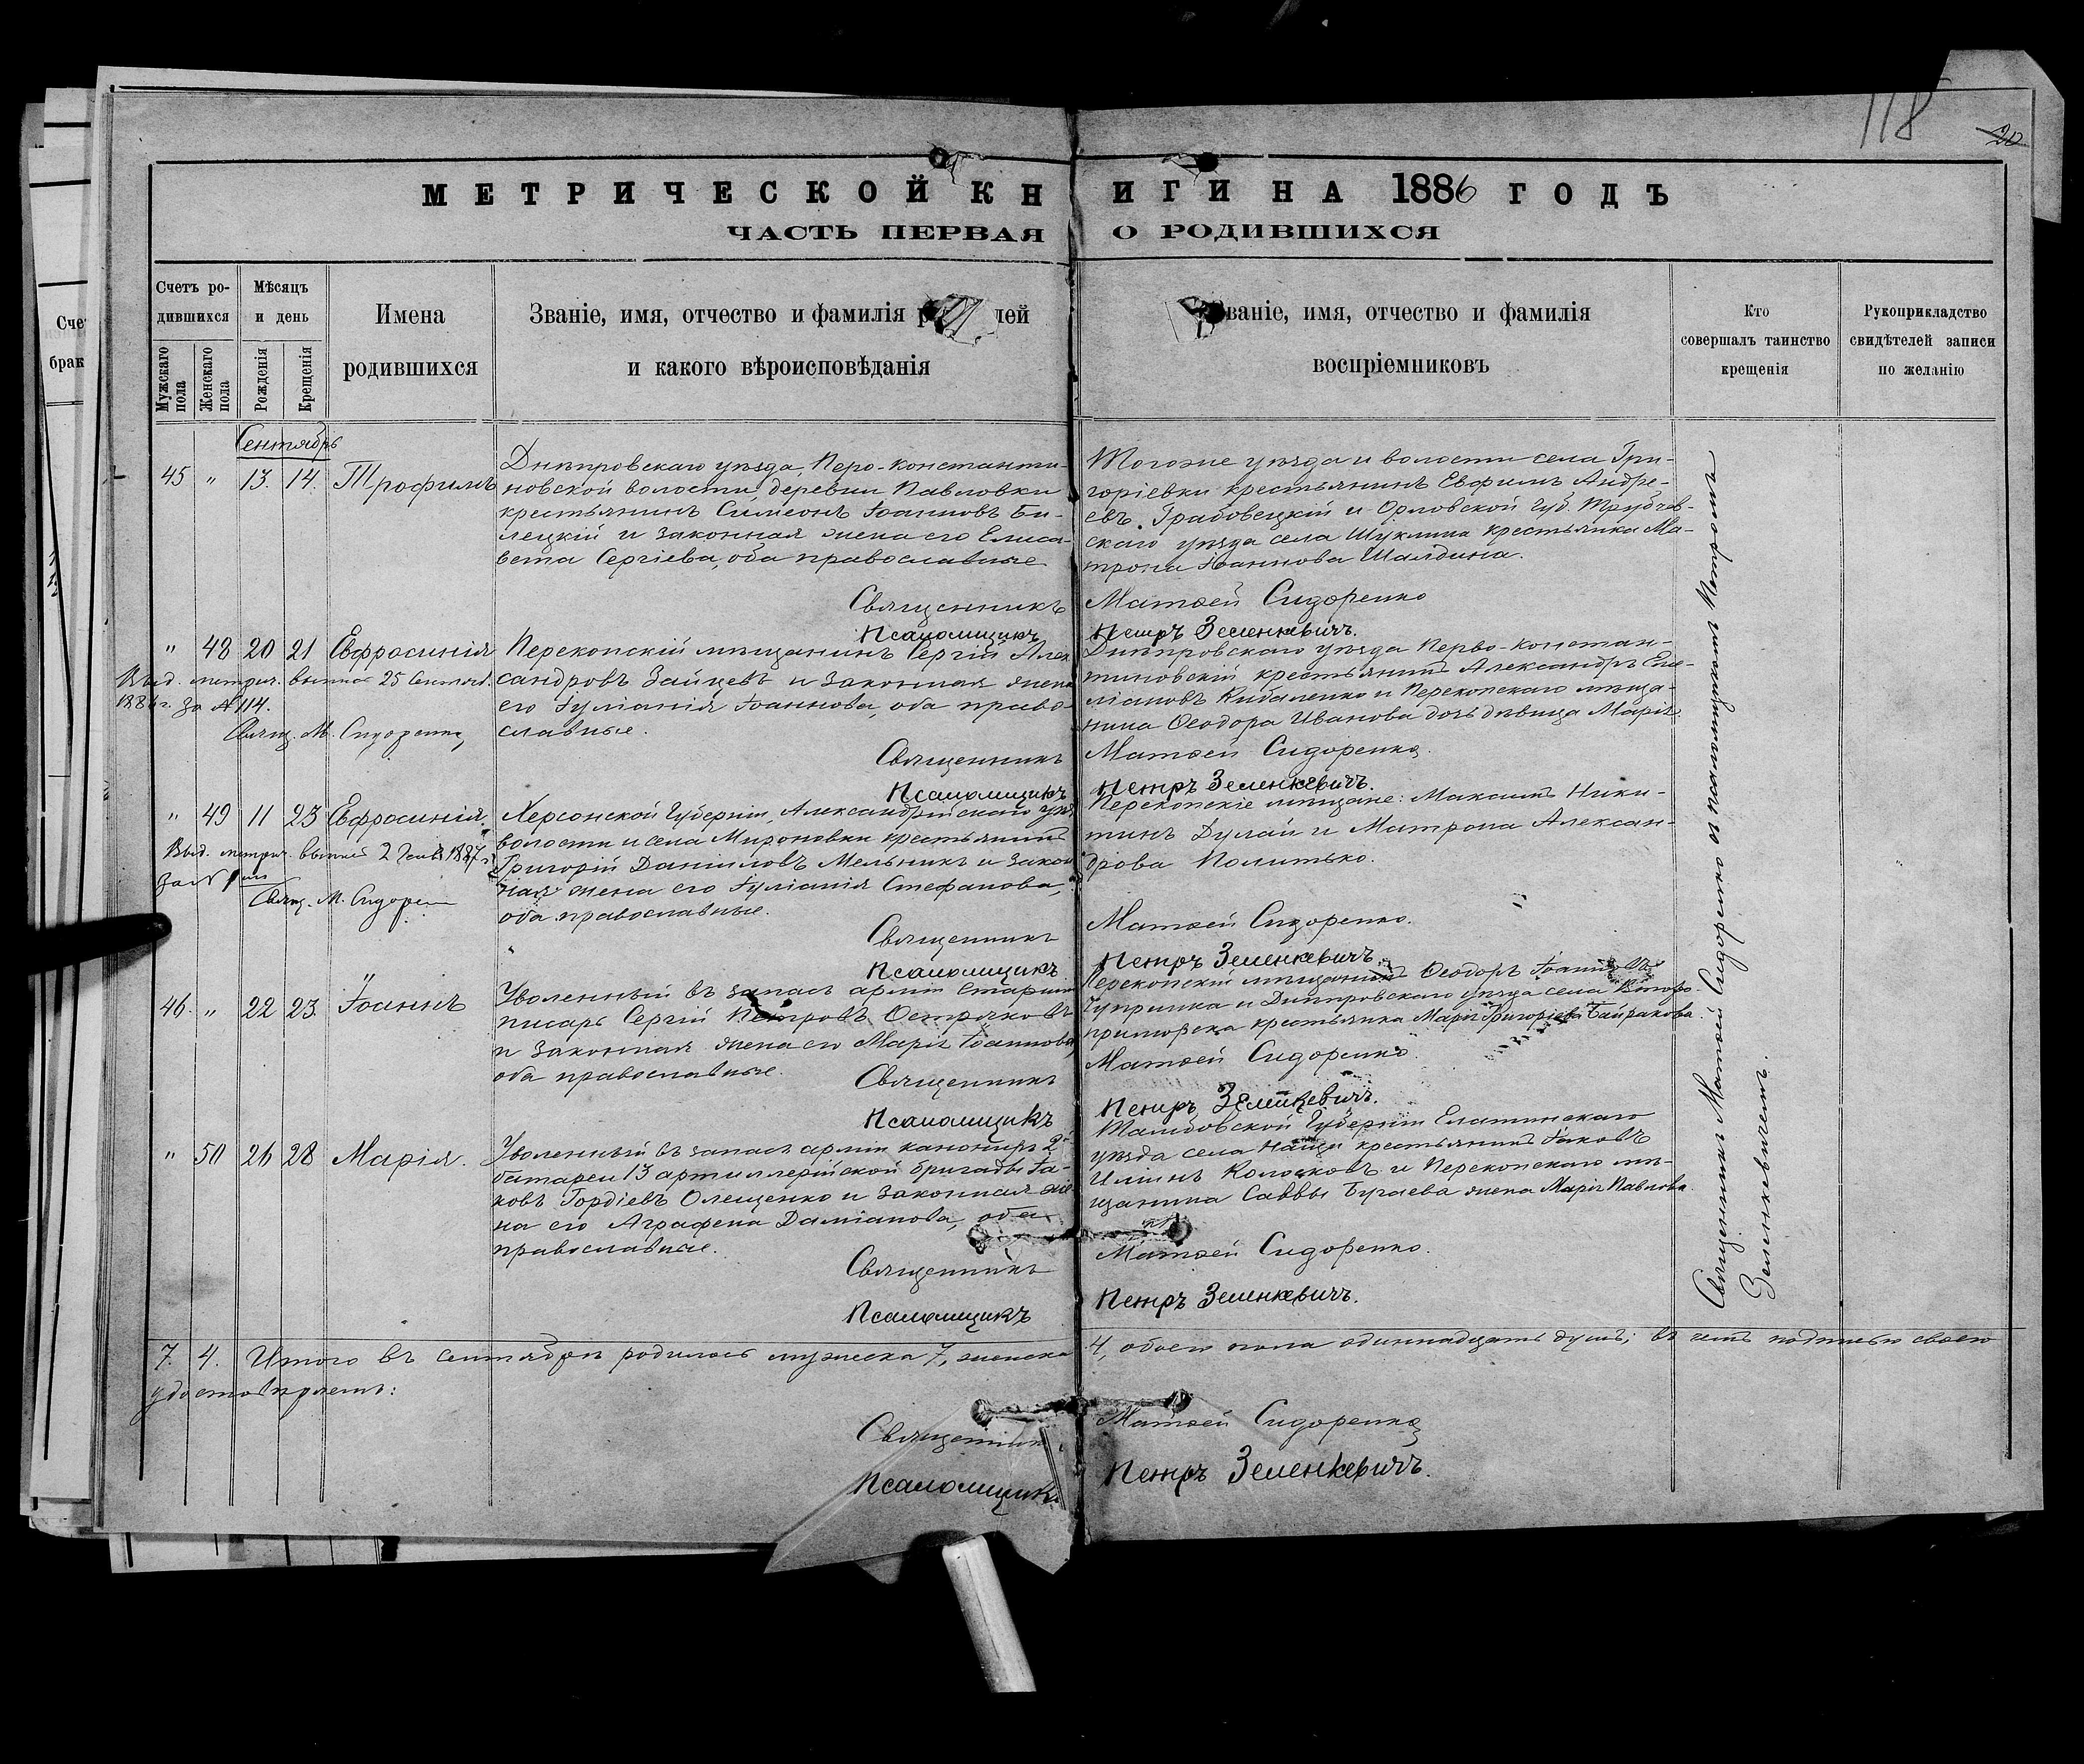 118
20
МЕТРИЧЕСКОЙ КНИГИ НА 1886 ГОДЪ
ЧАСТЬ ПЕРВАЯ О РОДИВШИХСЯ
Счетъ ро-
дившихся
Мужскаго пола
Женскаго пола
Мѣсяцъ
и день
Рожденія
Крещенія
Имена
родившихся
Званіе, имя, отчество и фамилія
и какого вѣроисповѣданія
Званіе, имя, отчество и фамилія
воспріемниковъ
Кто
совершалъ таинство
крещенія
Рукоприкладство
свидѣтелей записи
по желанію
Сче
брак
Сентябрь
45 " 13. 14. Трофимъ
Днѣпровскаго уѣзда, Перо-Константи-
новской волости, деревни Павловки
крестьянинъ Симеонъ Іоанновъ Би-
лецкій и законная жена его Елиса-
вета Сергіева, оба православные
Тогоже уѣзда и волости села Гри-
горіевки крестьянинъ Евфимъ Андре-
евъ Грабовецкій и Орловской губ. Трубчев-
скаго уѣзда села крестьянка Ма-
трона Іоаннова Шалдина.
Священникъ Матѳей Сидоренко
Псаломщикъ Петръ Зеленкевичъ.
" 48 20 21 Евфросинія
Выд. метрич. выпись 25 Сентяб.
1886 г. за № 114.
Свящ. М. Сидоренко
Перекопскій мѣщанинъ Сергій Алек
сандровъ Зайцевъ и законная жена
его Іуліанія Іоаннова, оба право-
славные.
Днѣпровскаго уѣзда Перво-Констан-
тиновскій крестьянинъ Александръ Еме-
ліановъ Кибаленко и Перекопскаго мѣща-
нина Ѳеодора Иванова дочь дѣвица Марія.
Священникъ Матѳей Сидоренко.
Псаломщикъ Петръ Зеленкевичъ.
" 49 11 23 Евфросинія.
Выд. метрич. выпись 2 1887 г.
за №
Свящ. М. Сидорен
Херсонской Губерніи, Александрійскаго уѣз
волости и села Мироновки крестьянинъ
Григорій Даніиловъ Мельникъ и закон
ная жена его Іуліанія Стефанова,
оба православные.
Перекопскіе мѣщане: Максимъ Ники-
тинъ Дулай и Матрона Алексан-
дрова Политько.
Священникъ Матѳей Сидоренко.
Псаломщикъ Петръ Зеленкевичъ
46. " 22 23 Іоаннъ
Уволенный въ запасъ арміи старшій
писарь Сергій Петровъ Остряковъ
и законная жена его Марія Іоаннова,
оба православные.
Перекопскій мѣщанинъ Ѳеодоръ Іоанновъ
Чупринка и Днѣпровскаго уѣзда села Второ-
приморска крестьянка Марія Григоріева Байракова.
Священникъ Матѳей Сидоренко.
Псаломщикъ Петръ Зеленкевичъ.
" 50 26 28 Марія.
Уволенный въ запасъ арміи канониръ 2й
батареи 13 артиллерійской бригады Іа-
ковъ Гордіевъ Олещенко и законная же
на его Аграфена Даміанова, оба
православные.
Тамбовской Губерніи Елатинскаго
уѣзда села крестьянинъ Іаковъ
Илiинъ Колосковъ и Перекопскаго мѣ-
щанина Саввы Бугаева жена Марія Павлова.
Священникъ Матѳей Сидоренко.
Псаломщикъ Петръ Зеленкевичъ.
Священникъ Матѳей Сидоренко съ псаломщикомъ Петромъ
Зеленкевичемъ.
7. 4. Итого въ сентябрѣ родилось мужеска 7, женска 4, обоего пола одиннадцать душъ; въ чемъ подписью своею
удостовѣряемъ:
Священникъ Матѳей Сидоренко
Псаломщикъ Петръ Зеленкевичъ.